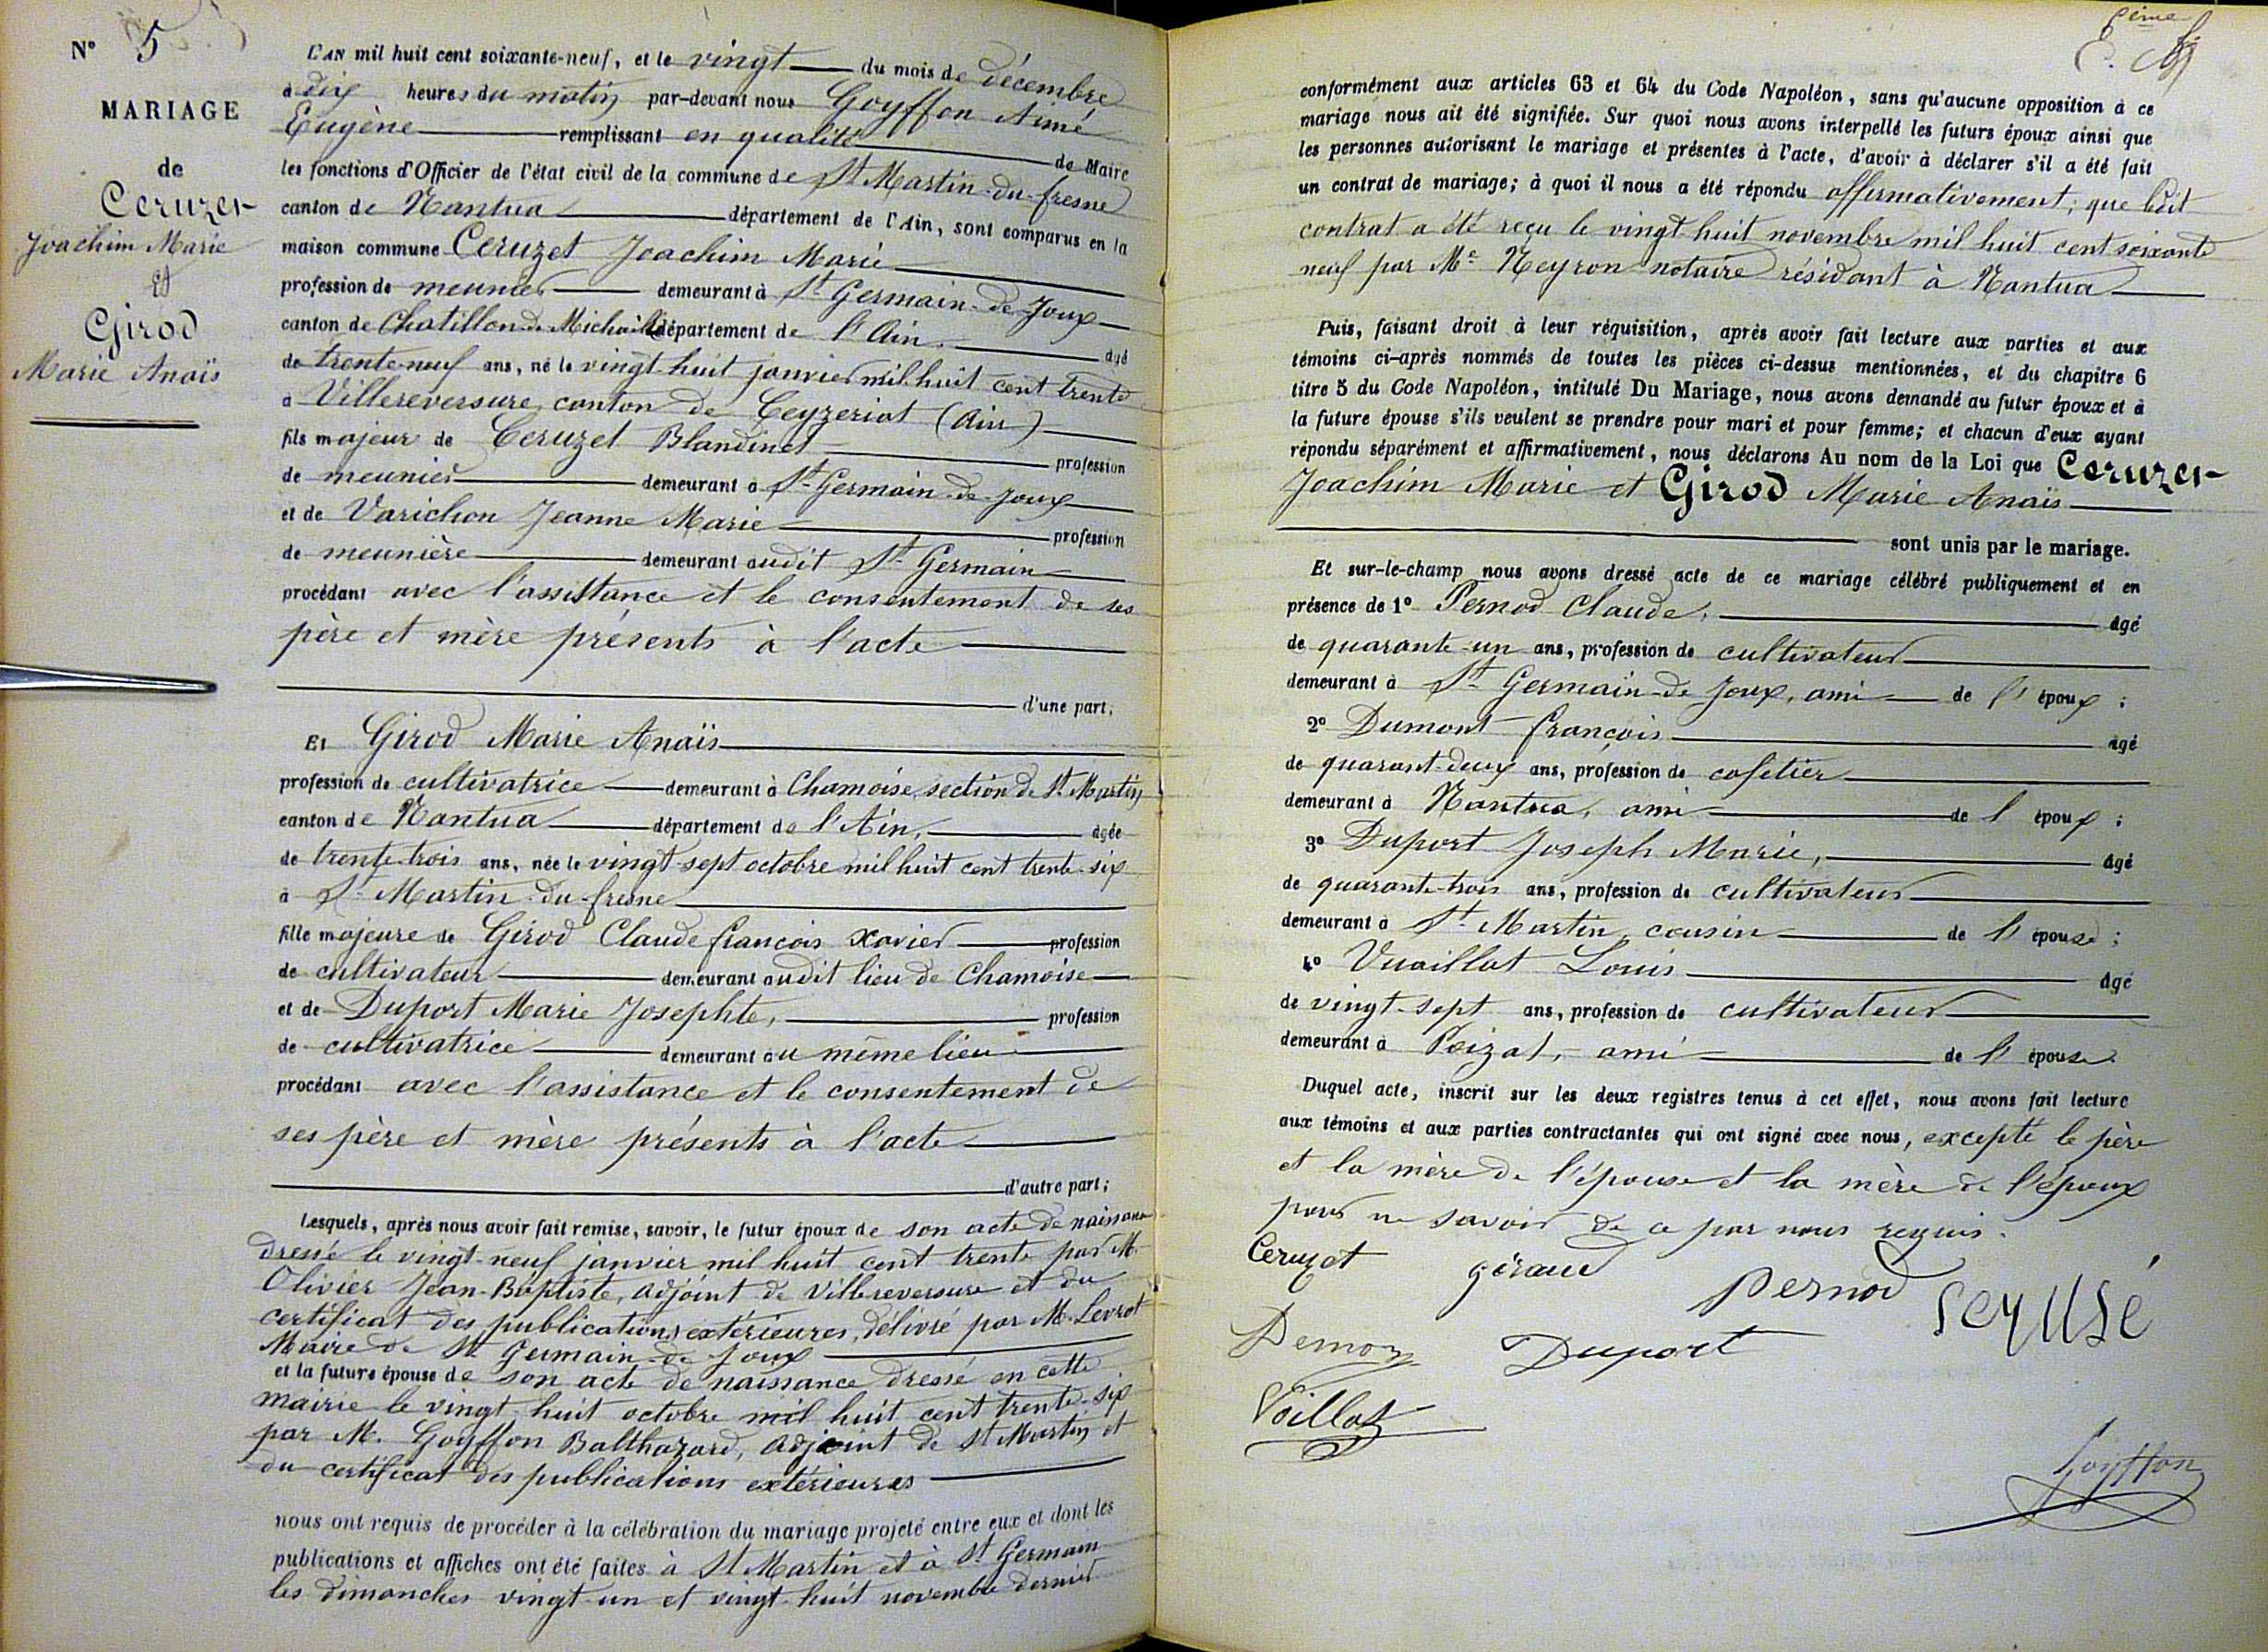 N° 5
MARIAGE
de
Ceruzet
Joachim Marie
et
Girod
Marie Anaïs
L'AN mil huit cent soixante-neuf, et le vingt du mois de décembre
à dix heures du matin par-devant nous Goyffon Aimé
Eugène remplissant en qualité de Maire
les fonctions d'Officier de l'état civil de la commune de St Martin-du-fresne
canton de Nantua département de l'Ain, sont comparus en la
maison commune Ceruzet Joachim Marie
profession de meunier demeurant à St Germain-de-Joux
canton de Chatillon-de-Michaille département de l'Ain. âgé
de trente-neuf ans, né le vingt-huit janvier mil huit cent trente
à Villereversure canton de Ceyzeriat (Ain)
fils majeur de Ceruzet Blandinet profession
de meunier demeurant à St Germain-de-Joux
et de Varichon Jeanne Marie profession
de meunière demeurant audit St Germain
procédant avec l'assistance et le consentement de ses
père et mère présents à l'acte
d'une part,
Et Girod Marie Anaïs
profession de cultivatrice demeurant à Chamoise, section de St Martin
canton de Nantua département de l'Ain, âgée
de trente-trois ans, née le vingt-sept octobre mil huit cent trente-six
à St Martin-du-fresne
fille majeure de Girod Claude françois Xavier profession
de cultivateur demeurant audit lieu de Chamoise
et de Duport Marie Josephte, profession
de cultivatrice demeurant au même lieu
procédant avec l'assistance et le consentement de
ses père et mère présents à l'acte
d'autre part;
Lesquels, après nous avoir fait remise, savoir, le futur époux de son acte de naissance
dressé le vingt-neuf janvier mil huit cent trente par M.
Olivier Jean-Baptiste, adjoint de Villereversure et du
certificat des publications extérieures, délivré par M. Levrat
Maire de St Germain-de-Joux
et la future épouse de son acte de naissance dressé en cette
mairie le vingt-huit octobre mil huit cent trente-six
par M. Goyffon Balthazard, adjoint de St Martin et
du certificat des publications extérieures
nous ont requis de procéder à la célébration du mariage projeté entre eux et dont les
publications et affiches ont été faites à St Martin et à St Germain
les dimanches vingt-un et vingt-huit novembre dernier
conformément aux articles 63 et 64 du Code Napoléon, sans qu'aucune opposition à ce
mariage nous ait été signifiée. Sur quoi nous avons interpellé les futurs époux ainsi que
les personnes autorisant le mariage et présentes à l'acte, d'avoir à déclarer s'il a été fait
un contrat de mariage; à quoi il nous a été répondu affirmativement, que ledit
contrat a été reçu le vingt-huit novembre mil huit cent soixante
neuf par Me Neyron notaire résidant à Nantua
Puis, faisant droit à leur réquisition, après avoir fait lecture aux parties et aux
témoins ci-après nommés de toutes les pièces ci-dessus mentionnées, et du chapitre 6
titre 5 du Code Napoléon, intitulé Du Mariage, nous avons demandé au futur époux et à
la future épouse s'ils veulent se prendre pour mari et pour femme; et chacun d'eux ayant
répondu séparément et affirmativement, nous déclarons Au nom de la Loi que Ceruzet
Joachim Marie et Girod Marie Anaïs
sont unis par le mariage.
Et sur-le-champ nous avons dressé acte de ce mariage célébré publiquement et en
présence de 1° Pernod Claude, âgé
de quarante-un ans, profession de cultivateur
demeurant à St Germain-de-Joux, ami de l'époux;
2° Dumont françois âgé
de quarant-deux ans, profession de cafetier
demeurant à Nantua, ami de l'époux;
3° Duport Joseph Marie, âgé
de quarante-trois ans, profession de cultivateur
demeurant à St Martin, cousin de l'épouse;
4° Vuaillat Louis âgé
de vingt-sept ans, profession de cultivateur
demeurant à Poizat, ami de l'épouse
Duquel acte, inscrit sur les deux registres tenus à cet effet, nous avons fait lecture
aux témoins et aux parties contractantes qui ont signé avec nous, excepté le père
et la mère de l'épouse et la mère de l'époux
pour ne savoir de ce par nous requis.
Ceruzet géraud Pernod Seruse
Duport
Voillat
Goyffon